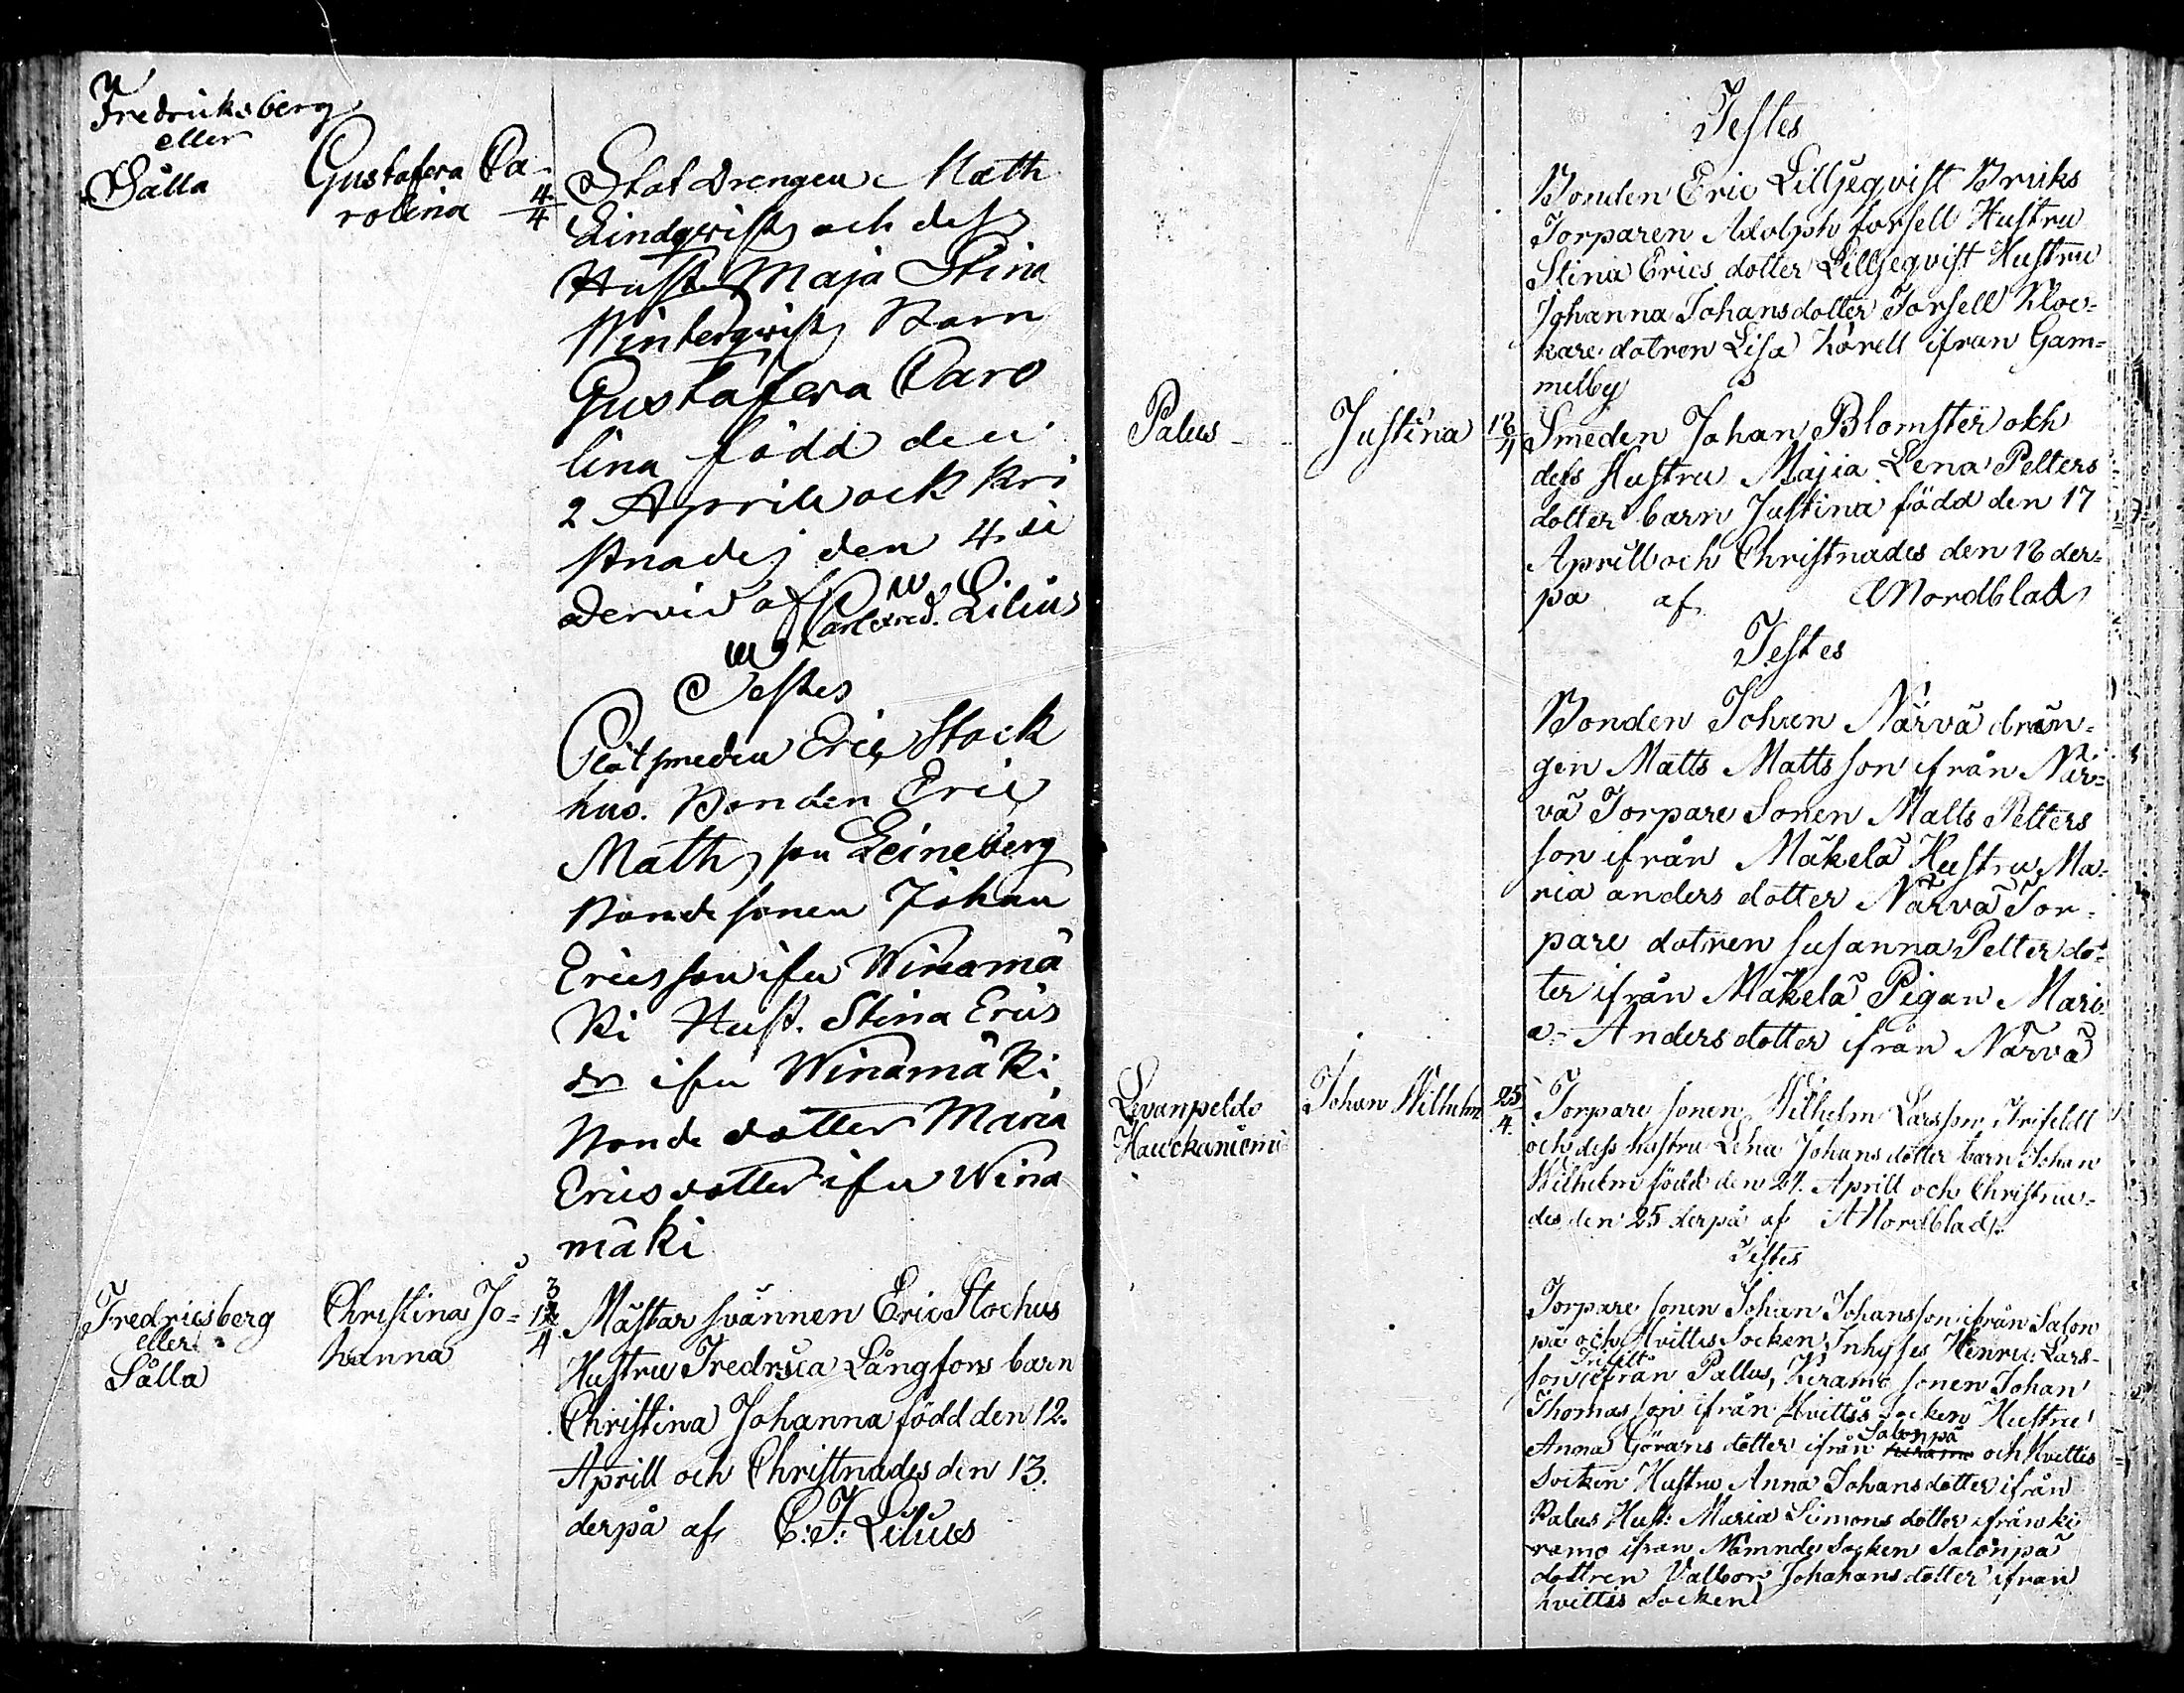 Fredricksberg
eller
Sälla
Gustafva Ca-
rolina
4/4
Stat Drengen Math
Lindqvist och dess
Hust. Maja Stina
Winterqvist Barn
Gustafva Caro
lina född den
2 Aprill ock kri
stnades den 4 
dervid af Carl Fred. Lilius
Testes
Plåtsmeden Eric Stock
hus. Bonden Eric
Mathsson Leineberg
Bonde sonen Johan
Ericsson ifrn Winamä
ki Hust. Stina Erics
dr ifrn Winamäki
Bonde dotter Maria
Ericsdotter ifrn Wina
mäki
Fredricsberg
eller
Sälla
Christina Jo=
hanna
13/4
Mästar svännen Eric Stochus
Hustru Fredrica Långfors barn
Christina Johanna född den 12.
Aprill och Christnades den 13.
derpå af C: F: Lilius
Testes
Bonden Eric Lilljeqvist Bruks
Torparen Adolph forsell Hustru
Stina Erics dotter Lilljeqvist Hustru
Johanna Johansdotter Forsell Kloc=
kare dotren Lisa Hörell ifrån Gam=
melby
Palus
Justina
18/4
Smeden Johan Blomster okh
dess Hustru Majia Lena Petters
dotter barn Justina född den 17
Aprill och Christnades den 18 der=
pa af ANordblad
Testes
Bonden Johan Närvä drän=
gen Matts Mattsson ifrån När=
vä Torpare Sonen Matts Petters
son ifrån Mäkelä Hustru Ma=
ria anders dotter Närvä Tor=
pare dotren Susanna Petter dot=
ter ifrån Mäkelä Pigan Mari
a Anders dotter ifrån Närvä
Levanpeldo
Hauckaniemi
Johan Wilhelm
25/4.
Torpare sonen Wilhelm Larsson Frifeldt
och dess hustru Lena Johans dotter barn Johan
Wilhelm född den 24. Aprill och Christna=
des den 25 derpå af ANordblad.
Testes
Torpare sonen Johan Johansson ifrån Salon
pä och Hvittis Socken Inhyses Henric Lars-
son Frifelt ifrån Pallus, Keramo sonen Johan
Thomasson ifrån Hvittis Socken Hustru
Anna Görans dotter ifrån Salonpä och Hvittis
Socken Hustru Anna Johansdotter ifrån
Palus Hust: Maria Simons dotter ifrån Ke
ramo ifrån Nämnde Socken Salonpä
dottren Valbor Johahans dotter ifrån
hvittis Socken